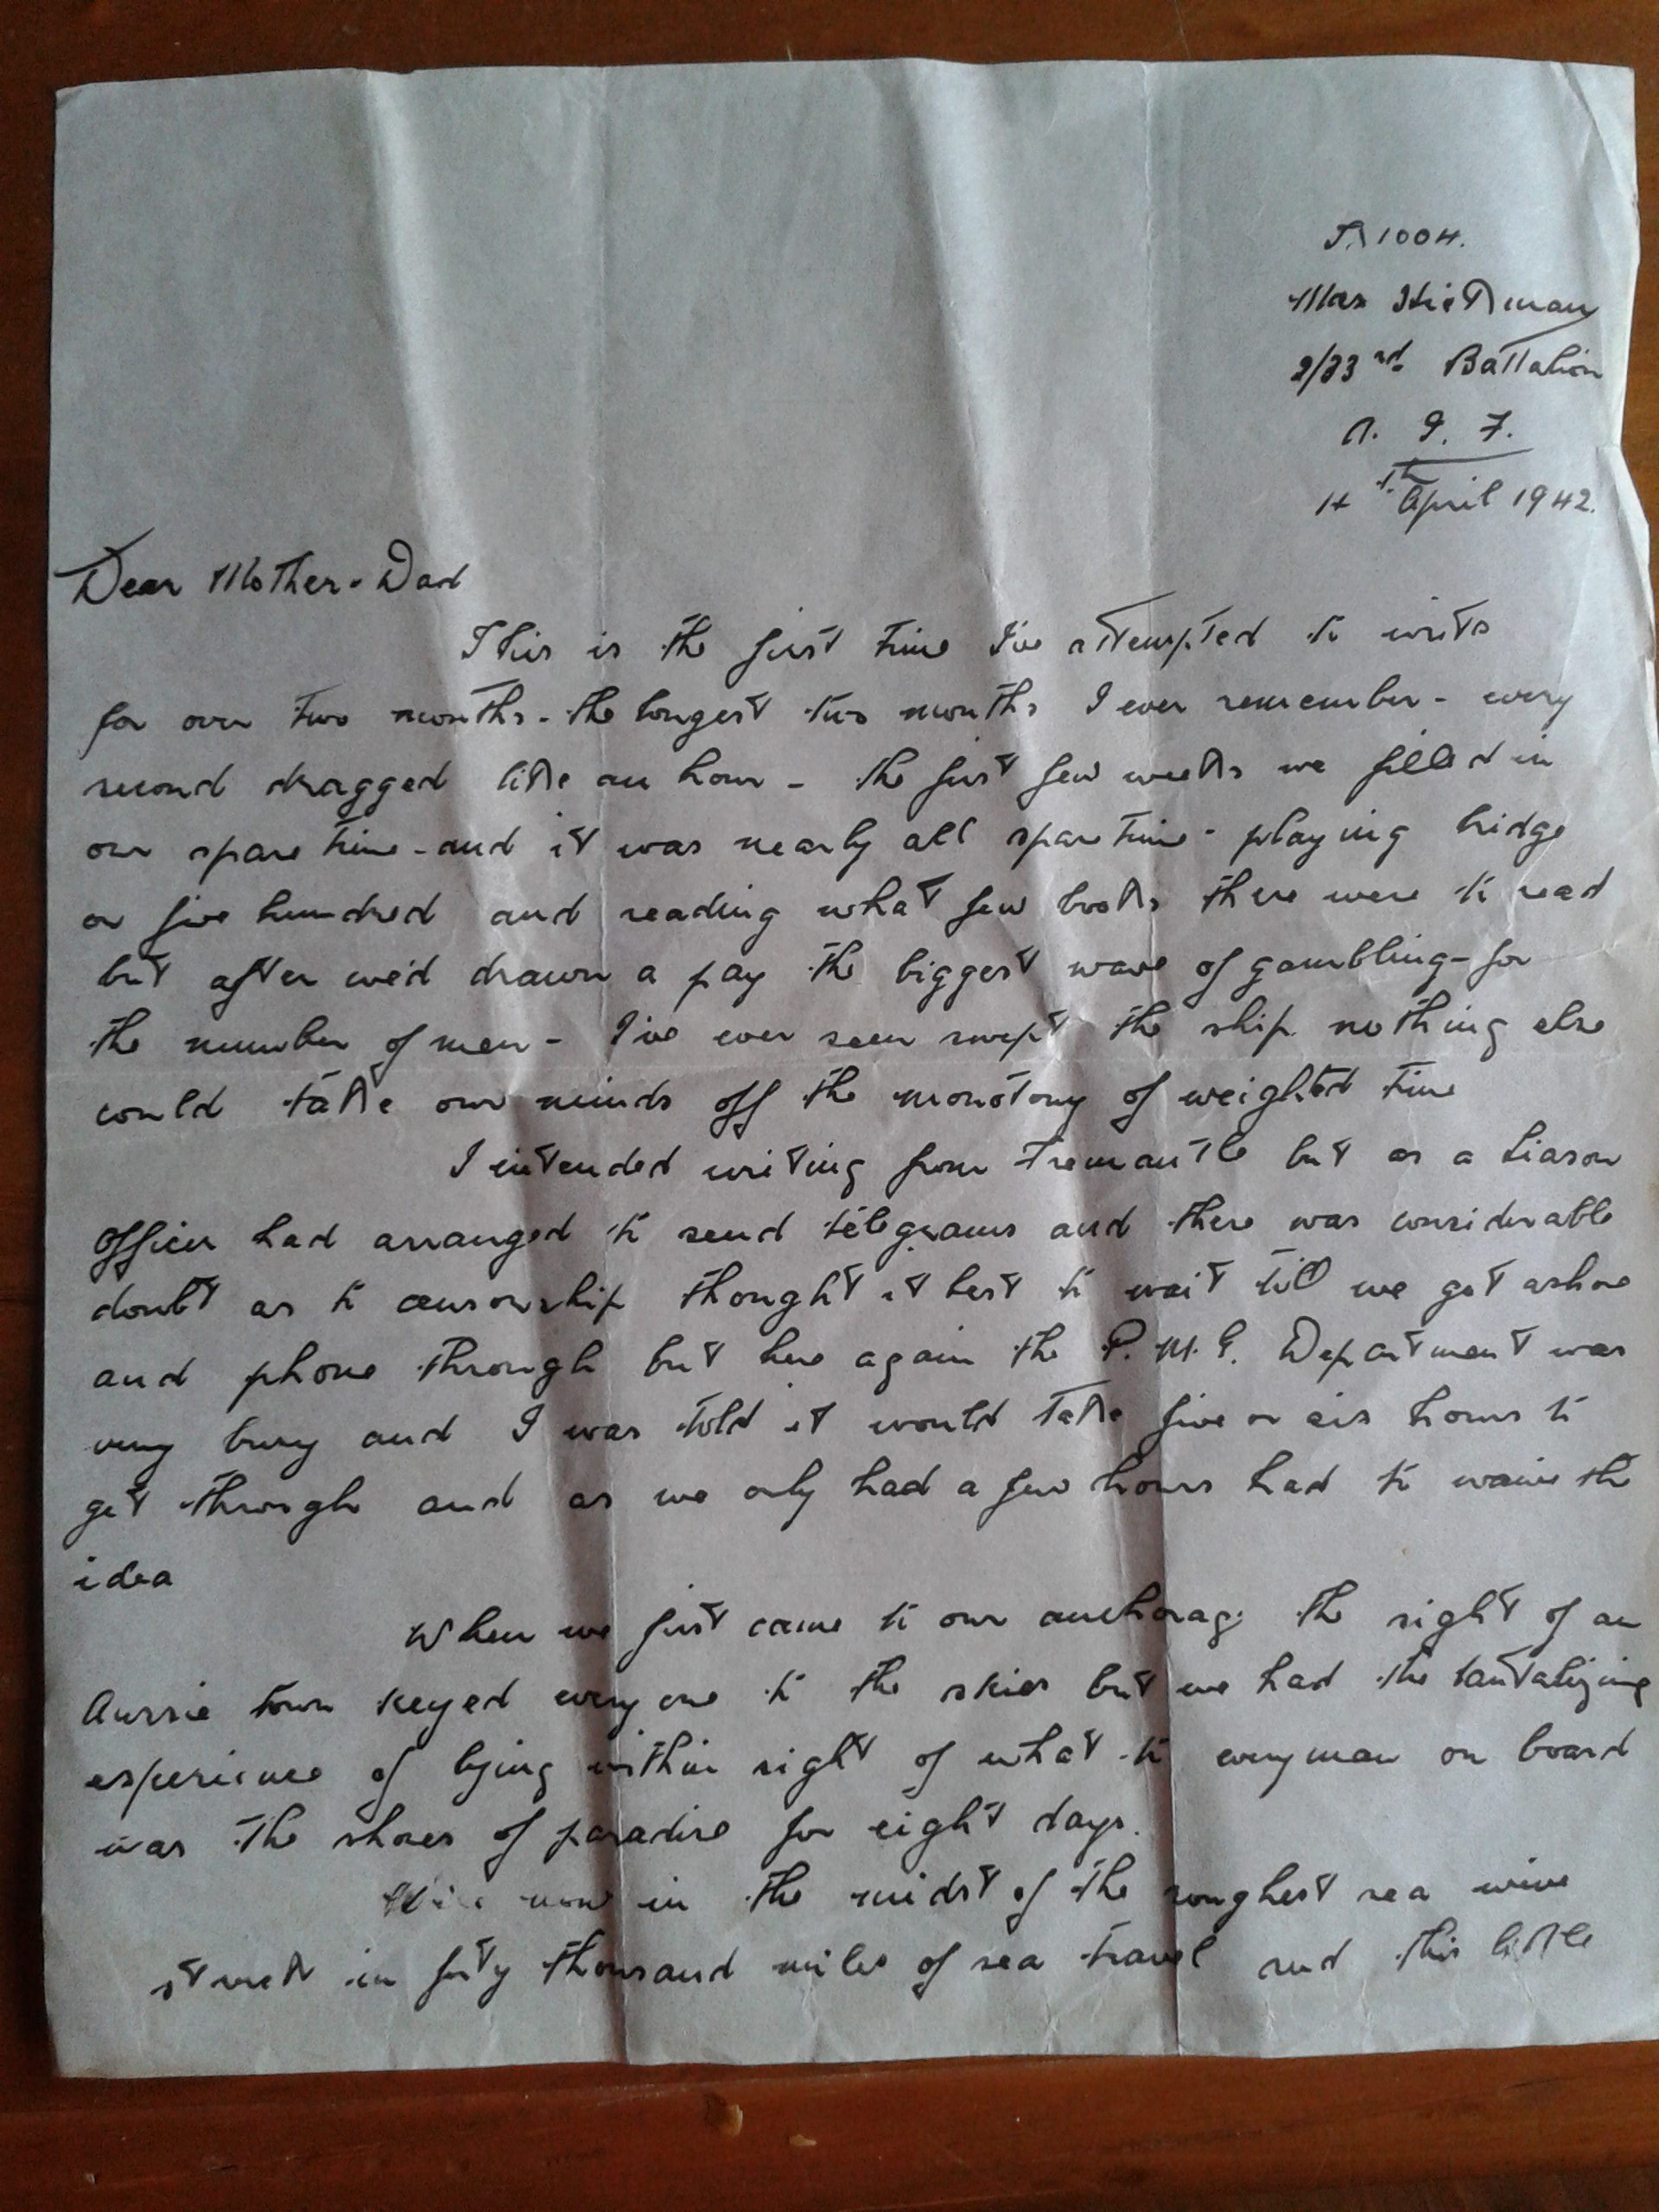 1004.
Max Hickman
2/33rd Battalion
A. I. F.
14th April 1942.
Dear Mother - Dad
This is the first time I've attempted to write
for over two months - the longest two months I ever remember - every
second dragged like an hour - the first few weeks we filled in
our spare time - and it was nearly all spare time - playing bridge
or five hundred and reading what few books there were to read
but after we'd drawn a pay the biggest wave of gambling - for
the number of men - I've ever seen swept the ship nothing else
could take our minds off the monotony of weighted time
I intended writing from Fremantle but as a Liason
Officer had arranged to send telegrams and there was considerable
doubt as to censorship thought it best to wait till we got ashore
and phone through but here again the P. M. G. Department was
very busy and I was told it would take five or six hours to
get through and as we only had a few hours had to waive the
idea
When we first came to our anchorage the sight of an
Aussie town keyed everyone to the skies but we had the tantalizing
experience of lying within sight of what to every man on board
was the shores of paradise for eight days.
now in the midst of the roughest sea we've
struck in forty thousand miles of sea travel and this little